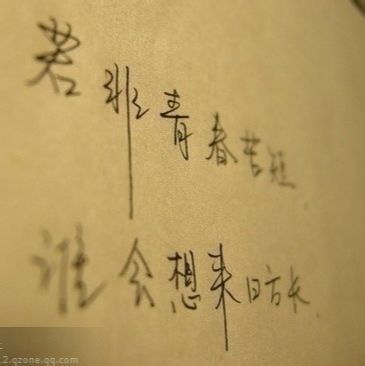 若非青春苦短
谁会想来日方长
2.qzone.qq.com